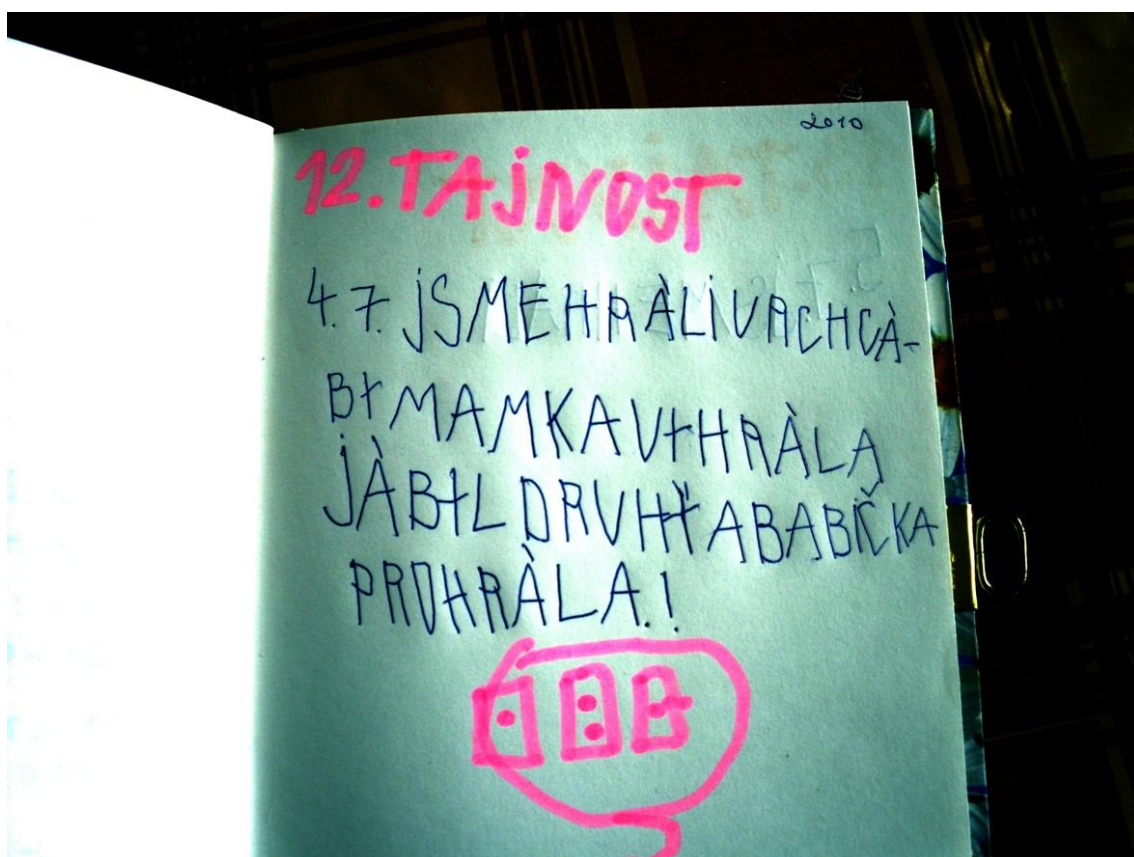 2010
12.TAJNOST
4.7. JSME HRÀLI VRCHCÀ-
BY MAMKA VYHRÀLA
JÀ BYL DRUHÝ A BABIČKA
PROHRÀLA.!